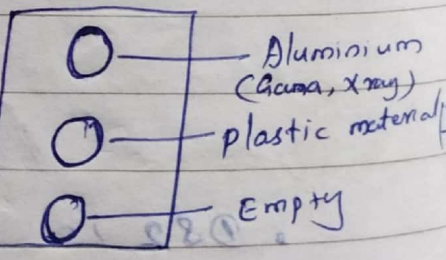 Aluminium
(Gama, X ray)
plastic material
Empty